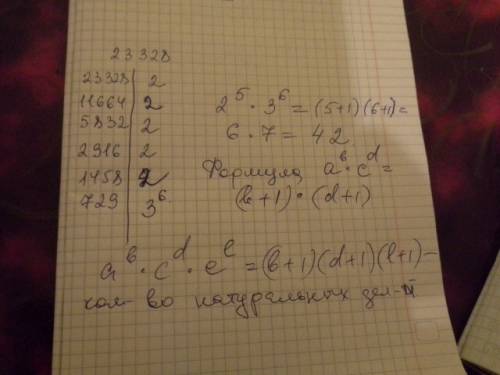 23328
23328 | 2
11664 | 2
5832 | 2
2916 | 2
1458 | 2
729 | 3⁶
2⁵ · 3⁶ = (5+1)(6+1) =
6 · 7 = 42
Формула aᵇ · cᵈ =
(b+1) · (d+1)
aᵇ · cᵈ · eˡ = (b+1)(d+1)(l+1) –
кол-во натуральных дел-й